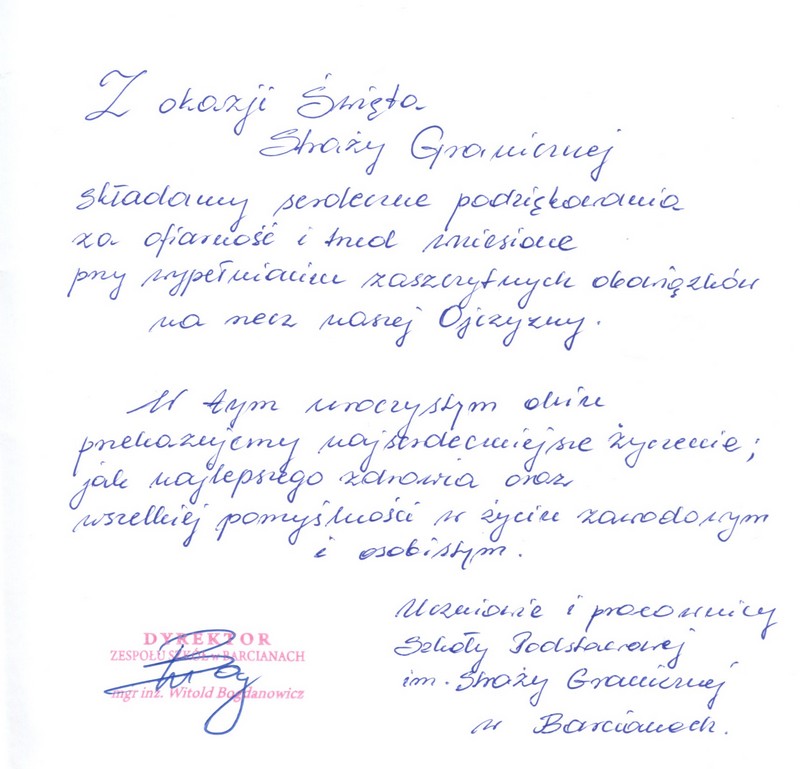 Z okazji Święta
Straży Granicznej
składamy serdeczne podziękowania
za ofiarność i trud wniesione
przy wypełnianiu zaszczytnych obowiązków
na rzecz naszej Ojczyzny.
W tym uroczystym dniu
przekazujemy najserdeczniejsze życzenia;
jak najlepszego zdrowia oraz
wszelkiej pomyślności w życiu zawodowym
i osobistym.
Uczniowie i pracownicy
Szkoły Podstawowej
im. Straży Granicznej
w Barcianach.
DYREKTOR
ZESPOŁU SZKÓŁ w BARCIANACH
mgr inż. Witold Bogdanowicz